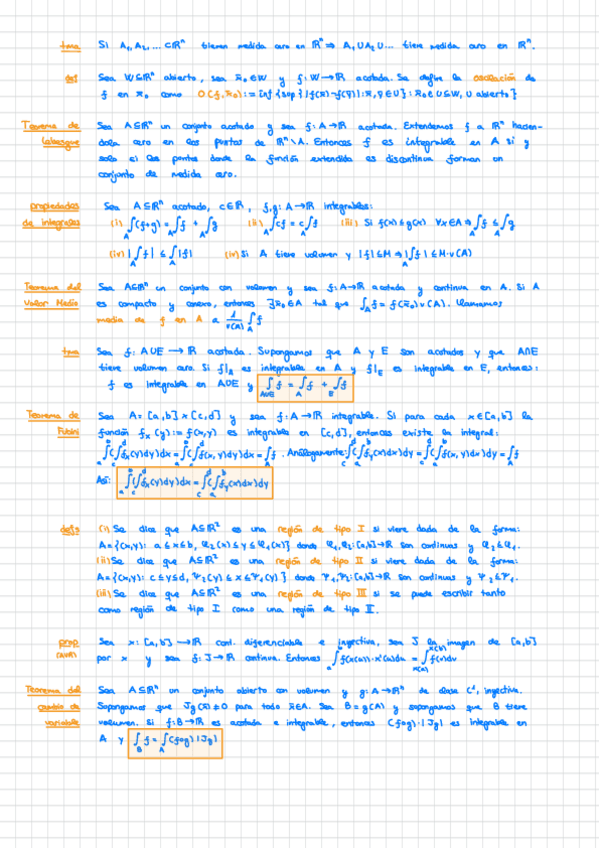 tma Si A₁, A₂, ... ⊂ ℝⁿ tienen medida cero en ℝⁿ ⇒ A₁ ∪ A₂ ∪ ... tiene medida cero en ℝⁿ.
def Sea W⊆ℝⁿ abierto, sea x̄₀∈W y f: W→ℝ acotada. Se define la oscilación de
f en x̄₀ como O(f, x̄₀) := inf { sup { |f(x̄)-f(ȳ)| : x̄, ȳ∈U } : x̄₀∈U⊆W, U abierto }
Teorema de Lebesgue
Sea A⊆ℝⁿ un conjunto acotado y sea f: A→ℝ acotada. Extendemos f a ℝⁿ hacien-
dola cero en los puntos de ℝⁿ\A. Entonces f es integrable en A si y
solo si los puntos donde la función extendida es discontinua forman un
conjunto de medida cero.
propiedades de integrales
Sea A⊆ℝⁿ acotado, c∈ℝ, f,g: A→ℝ integrables:
(i) ∫_A (f+g) = ∫_A f + ∫_A g (ii) ∫_A cf = c∫_A f (iii) Si f(x)≤g(x) ∀x∈A ⇒ ∫_A f ≤ ∫_A g
(iv) |∫_A f| ≤ ∫_A |f| (iv) Si A tiene volumen y |f|≤M ⇒ |∫_A f| ≤ M·v(A)
Teorema del Valor Medio
Sea A⊆ℝⁿ un conjunto con volumen y sea f: A→ℝ acotada y continua en A. Si A
es compacto y conexo, entonces ∃x̄₀∈A tal que ∫_A f = f(x̄₀) v(A). Llamamos
media de f en A a 1/v(A) ∫_A f
tma Sea f: A∪E → ℝ acotada. Supongamos que A y E son acotados y que A∩E
tiene volumen cero. Si f|_A es integrable en A y f|_E es integrable en E, entonces:
f es integrable en A∪E y ∫_{A∪E} f = ∫_A f + ∫_E f
Teorema de Fubini
Sea A = [a,b] × [c,d] y sea f: A→ℝ integrable. Si para cada x∈[a,b] la
función fₓ(y) := f(x,y) es integrable en [c,d], entonces existe la integral:
∫_a^b (∫_c^d fₓ(y)dy)dx = ∫_a^b (∫_c^d f(x,y)dy)dx = ∫_A f. Análogamente: ∫_c^d (∫_a^b f_y(x)dx)dy = ∫_c^d (∫_a^b f(x,y)dx)dy = ∫_A f
Así: ∫_a^b (∫_c^d fₓ(y)dy)dx = ∫_c^d (∫_a^b f_y(x)dx)dy
defs (i) Se dice que A⊆ℝ² es una región de tipo I si viene dada de la forma:
A = {(x,y): a≤x≤b, φ₂(x)≤y≤φ₁(x)} donde φ₁,φ₂: [a,b]→ℝ son continuas y φ₂≤φ₁.
(ii) Se dice que A⊆ℝ² es una región de tipo II si viene dada de la forma:
A = {(x,y): c≤y≤d, Ψ₂(y)≤x≤Ψ₁(y)} donde Ψ₁,Ψ₂: [a,b]→ℝ son continuas y Ψ₂≤Ψ₁.
(iii) Se dice que A⊆ℝ² es una región de tipo III si se puede escribir tanto
como región de tipo I como una región de tipo II.
prop
Sea x: [a,b] → ℝ cont. diferenciable e inyectiva, sea J la imagen de [a,b]
por x y sea f: J→ℝ continua. Entonces ∫_a^b f(x(u))·x'(u)du = ∫_{x(a)}^{x(b)} f(v)dv
Teorema del cambio de variable
Sea A⊆ℝⁿ un conjunto abierto con volumen y g: A→ℝⁿ de clase C¹, inyectiva.
Supongamos que Jg(x̄)≠0 para todo x̄∈A. Sea B = g(A) y supongamos que B tiene
volumen. Si f: B→ℝ es acotada e integrable, entonces (f∘g)·|Jg| es integrable en
A y ∫_B f = ∫_A (f∘g)·|Jg|